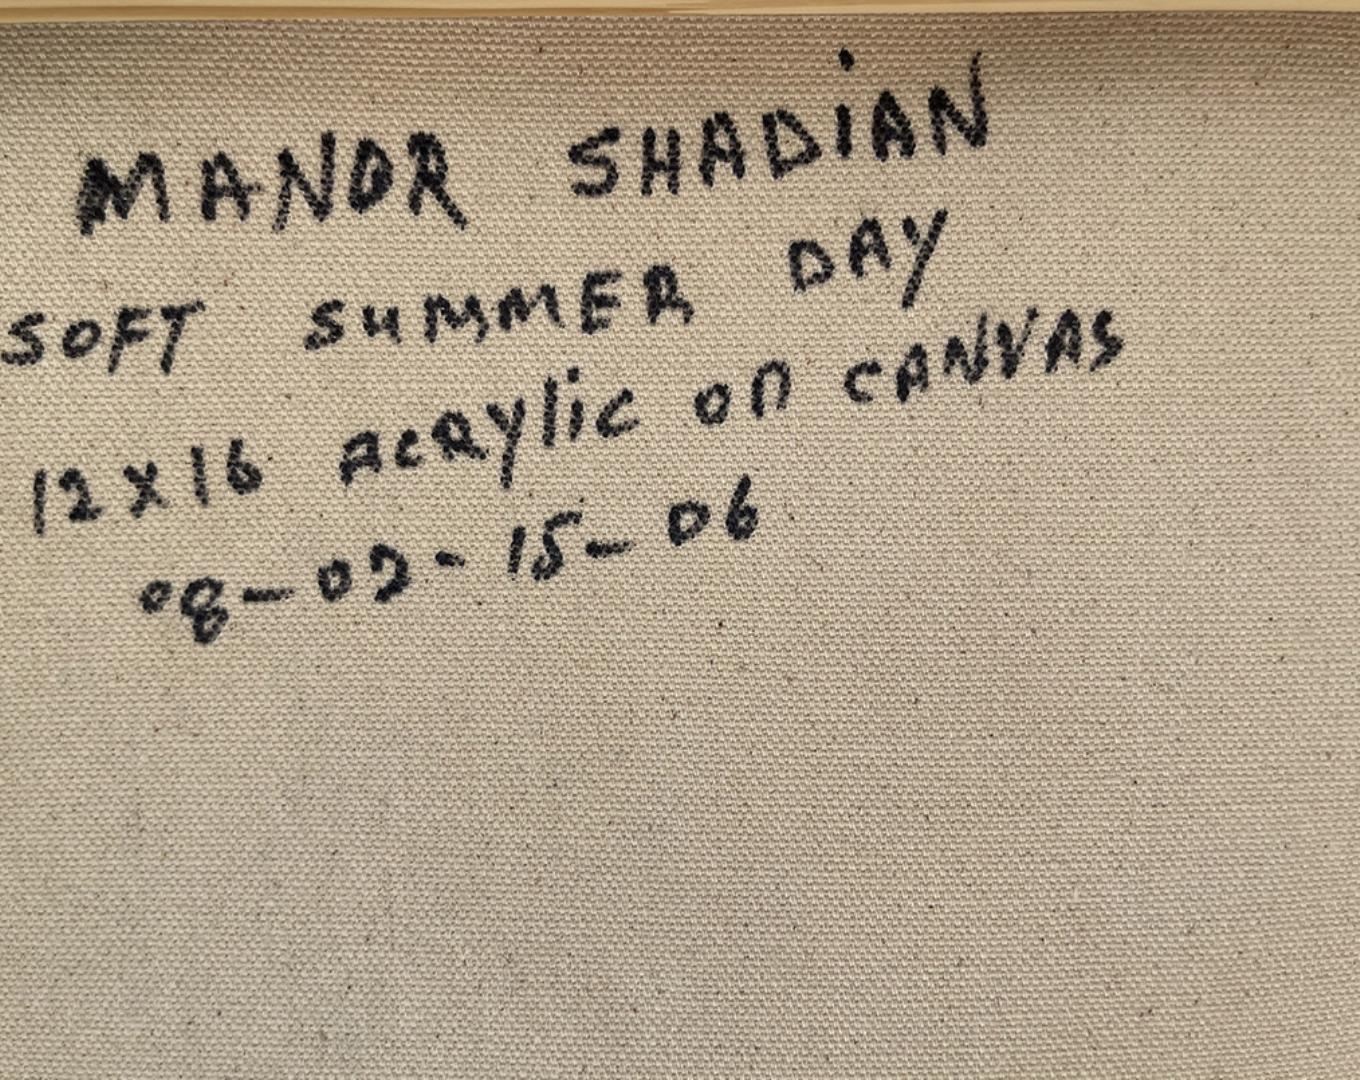 MANOR SHADiAN
SOFT SUMMER DAY
12x16 ACRYlic on CANVAS
08-02-15-06